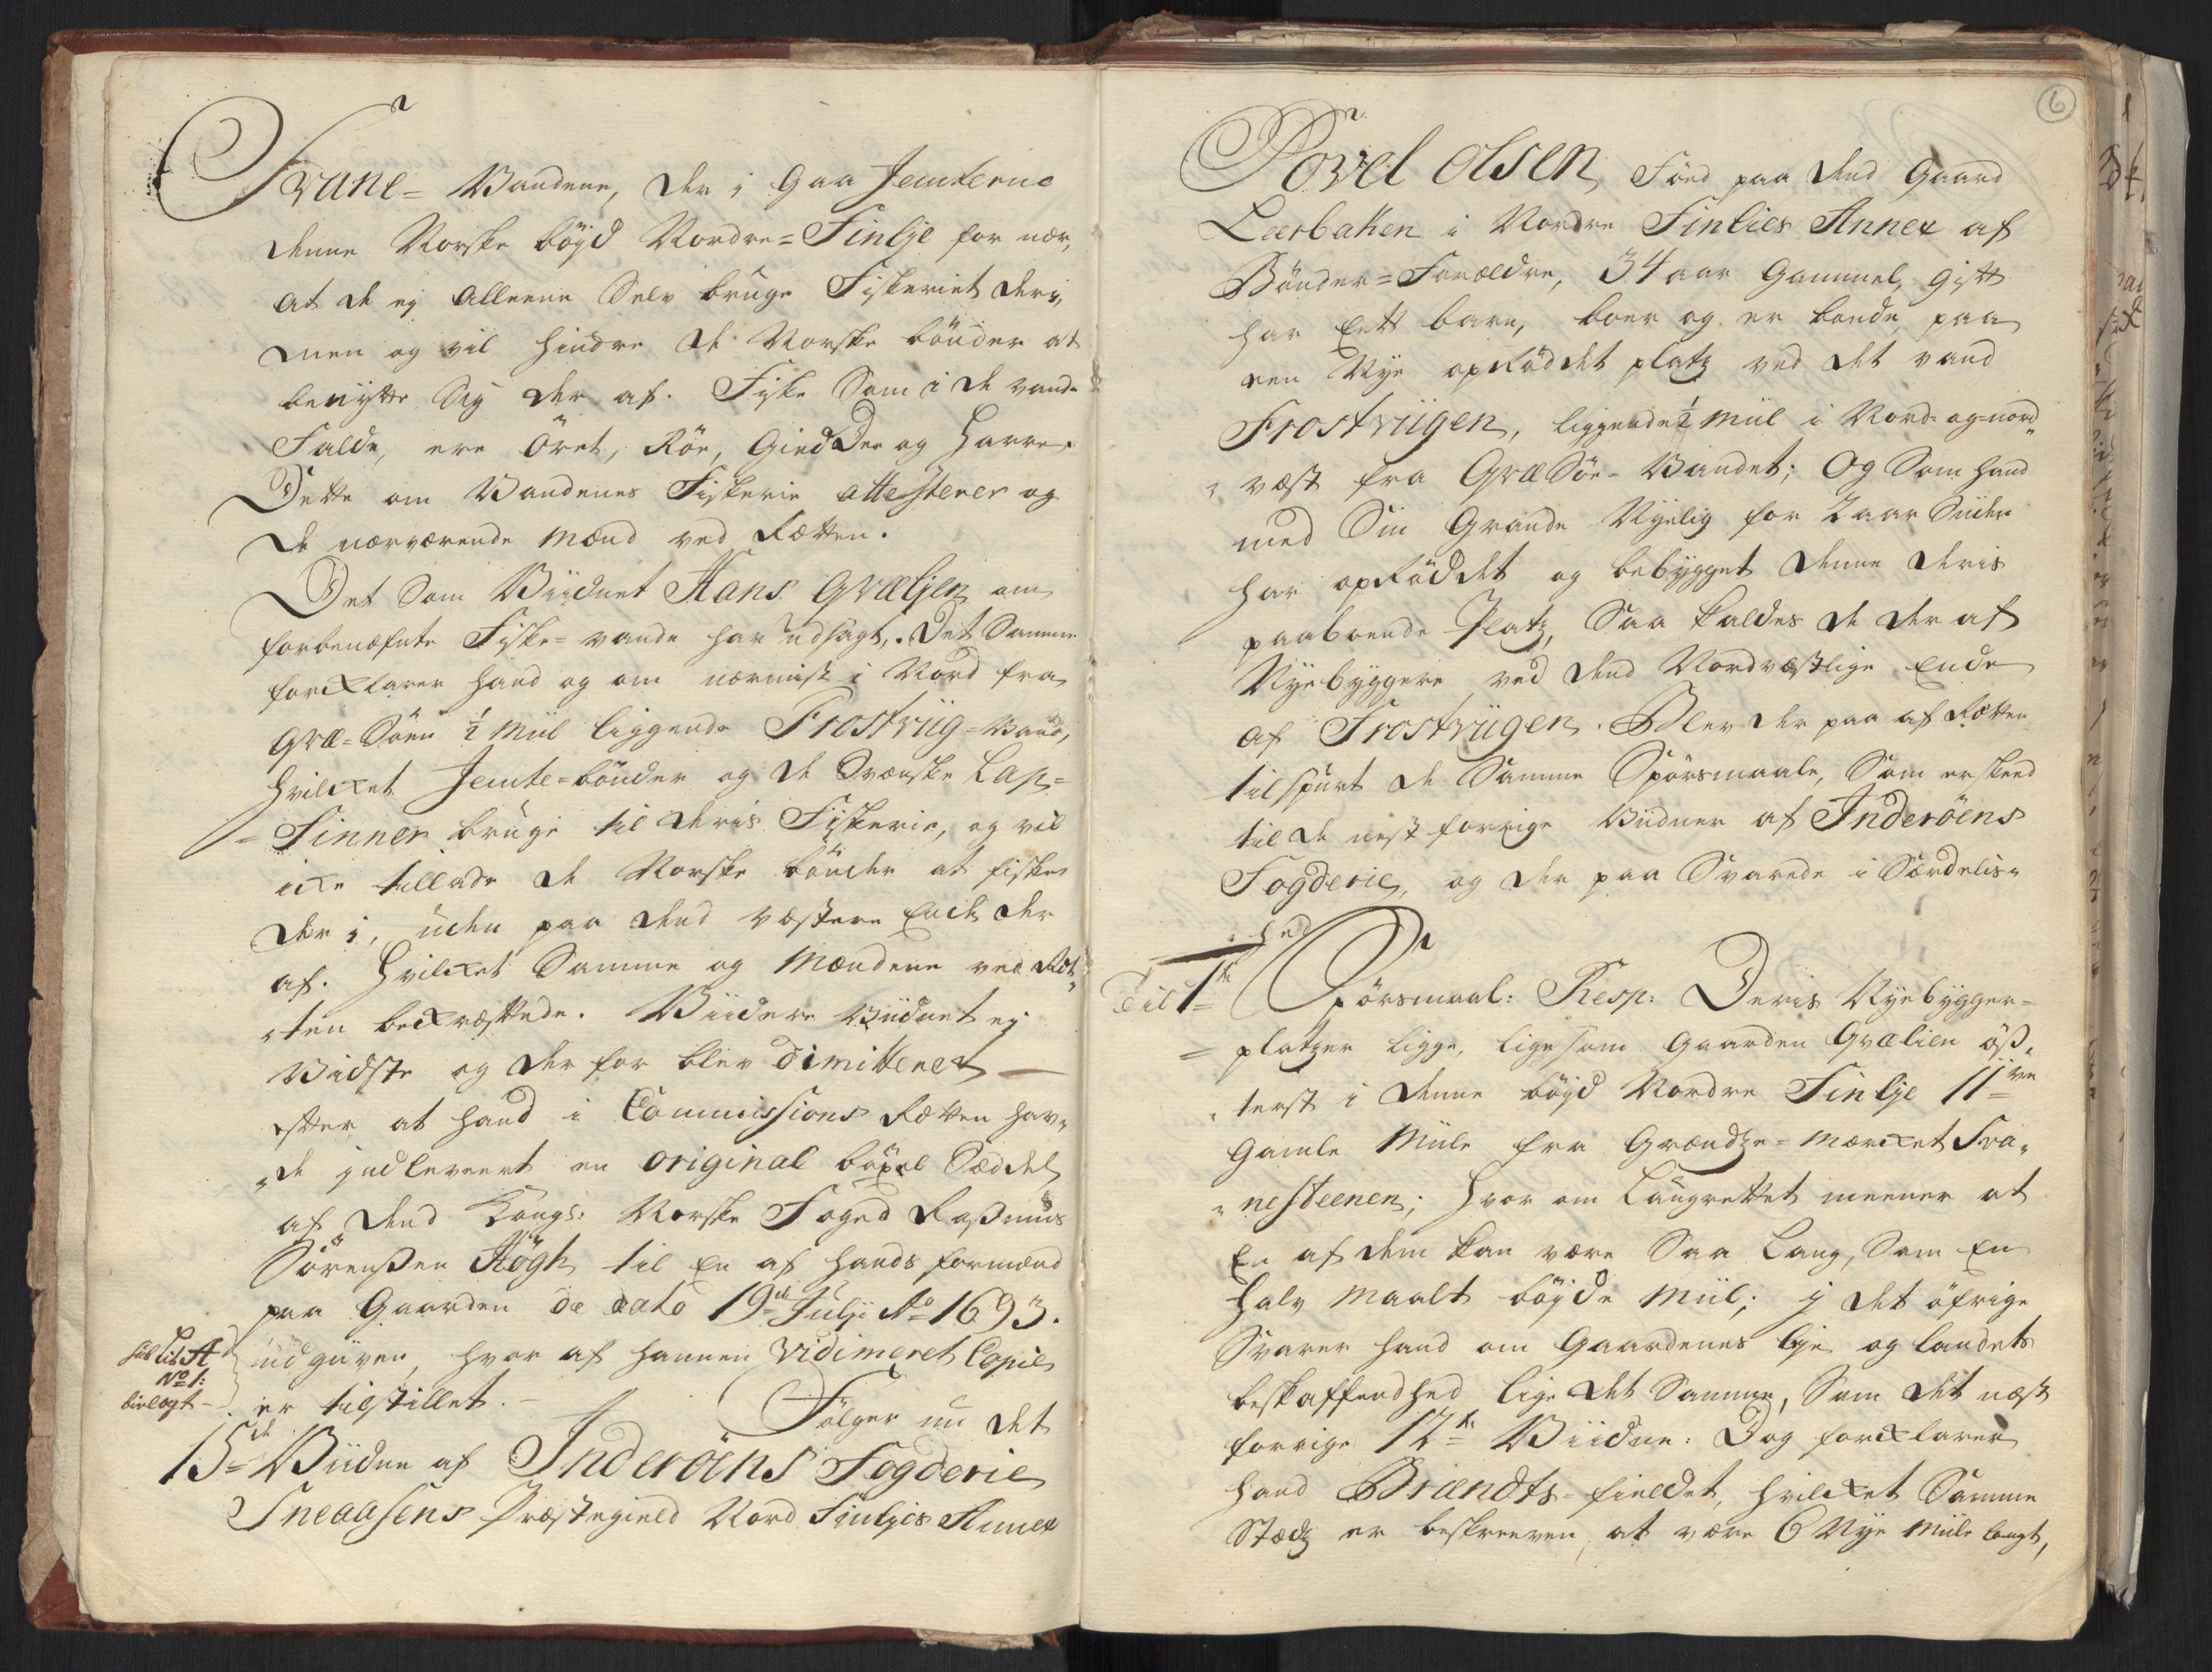 Svane= Vandene, der i gaa Jemterne
denne Norske böÿd Nordre=Finlje for nær,
at de ej alleene Selv bruge Fiskeriet deri,
men og vil hindre de Norske bönder at
benÿtte Sig der af. Fiske Som i de vande
Falde, ere Öret, Röe, Giedder og Harre.
Dette om Vandenes Fiskerie attesterer og
de nærværende Mænd ved Rætten.
Det Som Viidnet Hans Gvæljen om
forbenæfnte Fiske=vande har udsagt, Det Samme
forcklarer hand og om nærmist i Nord fra
Gvæ=Söen ½ Miil liggende Frostviig=Vand,
hvilcket Jemte=bönder og de Svenske Lap=
=Finner bruge til deris Fiskerie, og vil
icke tillade de Norske bönder at fiske
der i, uden paa dend væstere Ende der
af. Hvilcket Samme og Mændene ved Ræt„
„ten becræftede. Viidere Viidnet ej
Vidste og der for blev dimitteret —
efter at hand i Commissions Rætten hav„
„de indleveret en original böxel Sæddel
af dend Kongs: Norske Foged Rasmus
Sörenßen Högh til En af hands formænd
paa Gaarden de dato 19de Julji Ao 1693.
udgiven, hvor af hannem Vidimeret Copie
sub Lit A
No 1:
bielagt –
er tilstillet. –
Fölger nu det
15de Viidne af Inderöens Fogderie
Sneaasens Præstegield Nord Finljes Annex
6
Povel Olsen Föed paa dend Gaard
Leerbaken i Nordre Finlies Annex af
Bönder=Forældre, 34 aar Gammel, gift
har Ett barn, boer og er bonde paa
een Nÿe oprÿddet platz ved det vand
Frostviigen, liggende ½ Miil i Nord=og=nord„
„væst fra GvæSöe=Vandet; Og Som hand
med Sin Grande Nÿelig for 2 aar Siiden
har oprÿddet og bebÿgget denne deris
paaboende Platz, Saa kaldes de der af
Nÿebÿggere ved dend Nordvæstlige Ende
af Frostviigen. Blev der paa af Rætten
tilspurt de Samme Spörsmaale, Som er skeed
til de nest forrige Viidner af Inderöens
Fogderie, og der paa Svarede i Særdelis„
„hed
Til 1te Spörsmaal: Resp: Deris Nÿebÿgger=
=platzer ligge, lige som Gaarden Gvælien öst„
„terst i denne böÿd Nordre Finlje 11ve
Gamle Miile fra Grændtze=mærcket Sva„
„nesteenen; Hvor om Laugrettet meener at
En af dem kan være Saa Lang, Som En
halv Maalt böÿde Miil; i det öfrige
Svarer hand om Gaardenes leje og landets
beskaffendhed lige det Samme, Som det næst
forrige 12te Viidne: Dog forcklarer
hand Brændts=fieldet, hvilcket Samme
Stædz er beskreeven, at være 6 Nÿe Miile langt,